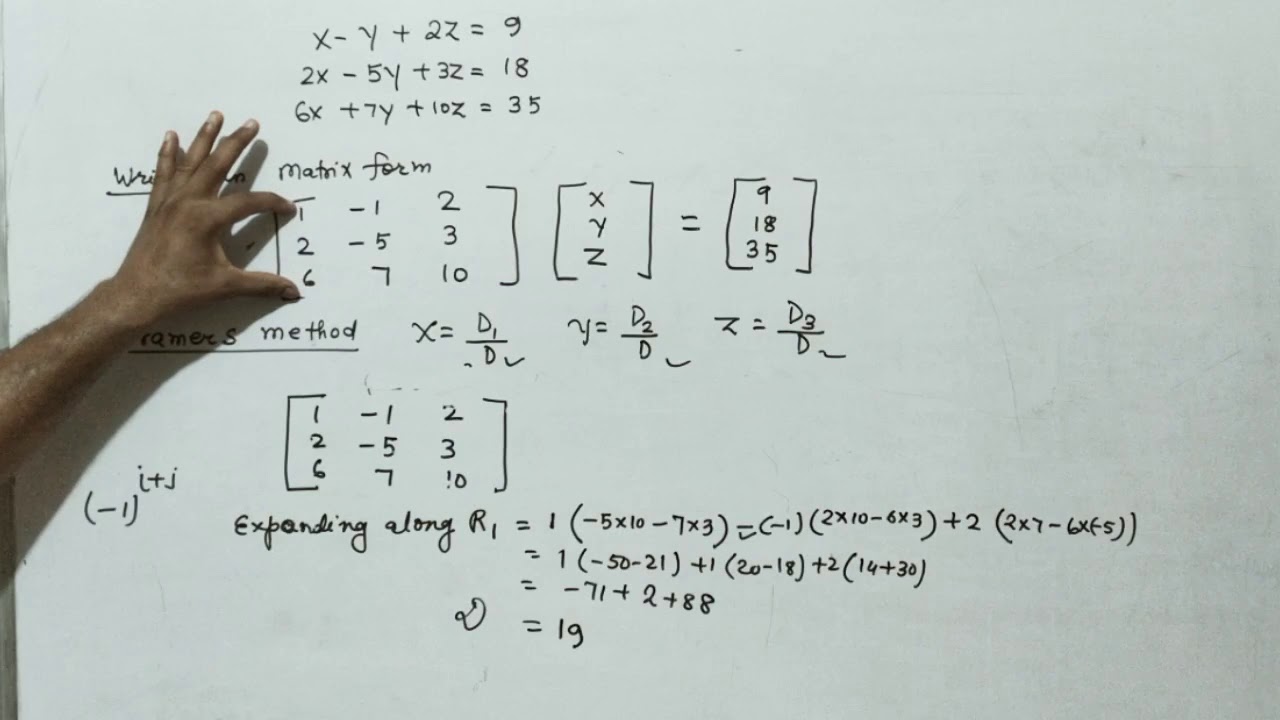 x - y + 2z = 9
2x - 5y + 3z = 18
6x + 7y + 10z = 35
matrix form
1 -1 2 x 9
2 -5 3 y = 18
6 7 10 z 35
ramers method x = D1/D y = D2/D z = D3/D
1 -1 2
2 -5 3
6 7 10
(-1)^i+j
Expanding along R1 = 1 (-5x10 - 7x3) - (-1) (2x10 - 6x3) + 2 (2x7 - 6x(-5))
= 1 (-50-21) + 1 (20-18) + 2 (14+30)
= -71 + 2 + 88
D = 19